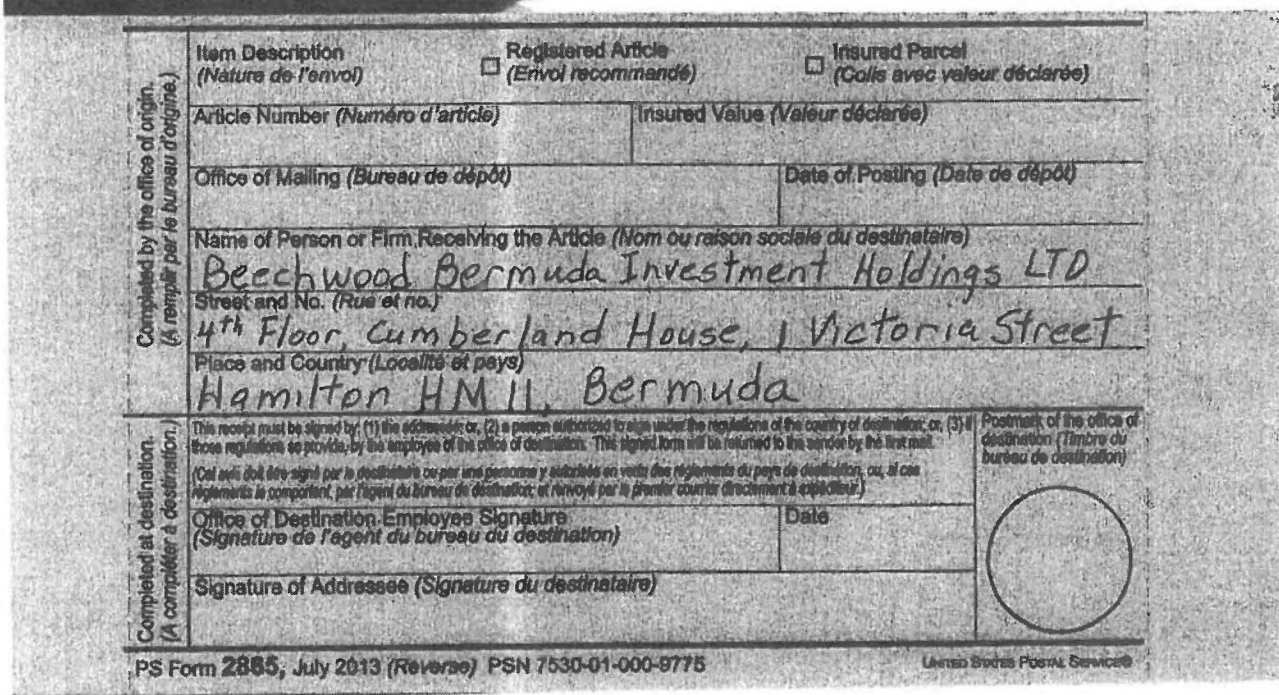 Completed by the office of origin.
(A remplir par le bureau d'origine.)
Item Description
(Nature de l'envoi)
☐ Registered Article
(Envoi recommandé)
☐ Insured Parcel
(Colis avec valeur déclarée)
Article Number (Numéro d'article)
Insured Value (Valeur déclarée)
Office of Mailing (Bureau de dépôt)
Date of Posting (Date de dépôt)
Name of Person or Firm Receiving the Article (Nom ou raison sociale du destinataire)
Beechwood Bermuda Investment Holdings LTD
Street and No. (Rue et no.)
4th Floor, Cumberland House, 1 Victoria Street
Place and Country (Localité et pays)
Hamilton HM 11, Bermuda
Completed at destination.
(A compléter à destination.)
This receipt must be signed by: (1) the addressee; or, (2) a person authorized to sign under the regulations of the country of destination; or, (3) if
those regulations so provide, by the employee of the office of destination. This signed form will be returned to the sender by the first mail.
(Cet avis doit être signé par le destinataire ou par une personne y autorisée en vertu des règlements du pays de destination, ou, si ces
règlements le comportent, par l'agent du bureau de destination, et renvoyé par le premier courrier directement à l'expéditeur.)
Postmark of the office of
destination (Timbre du
bureau de destination)
Office of Destination Employee Signature
(Signature de l'agent du bureau du destination)
Date
Signature of Addressee (Signature du destinataire)
PS Form 2865, July 2013 (Reverse) PSN 7530-01-000-9775
UNITED STATES POSTAL SERVICE®